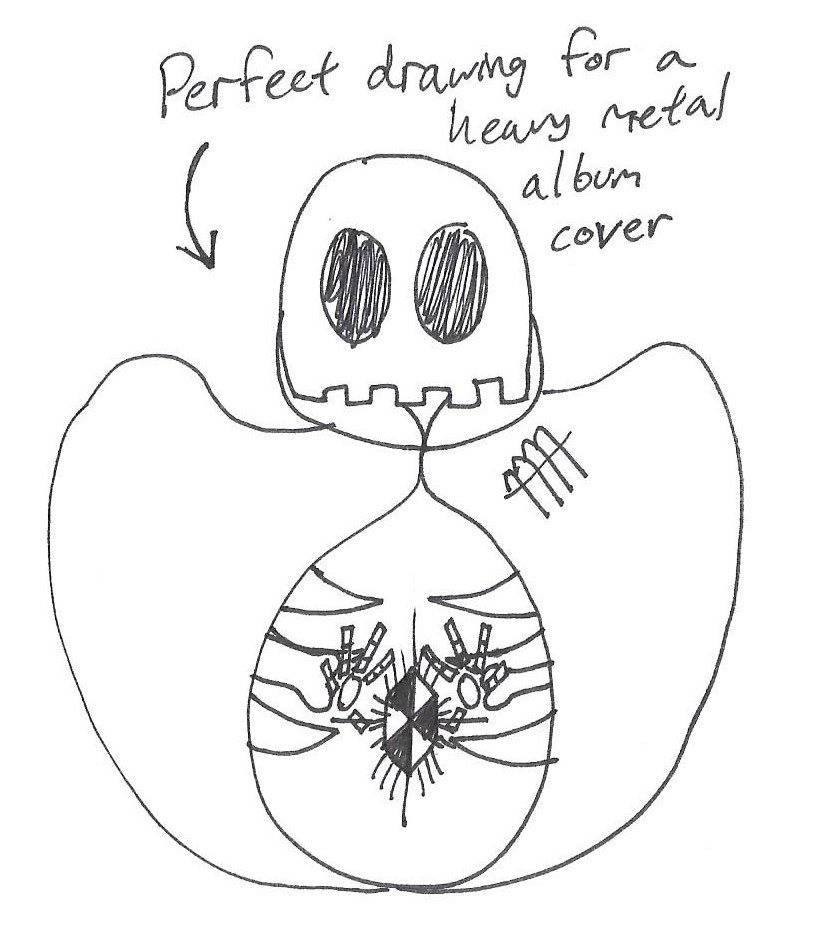 Perfect drawing for a
heavy metal
album
cover